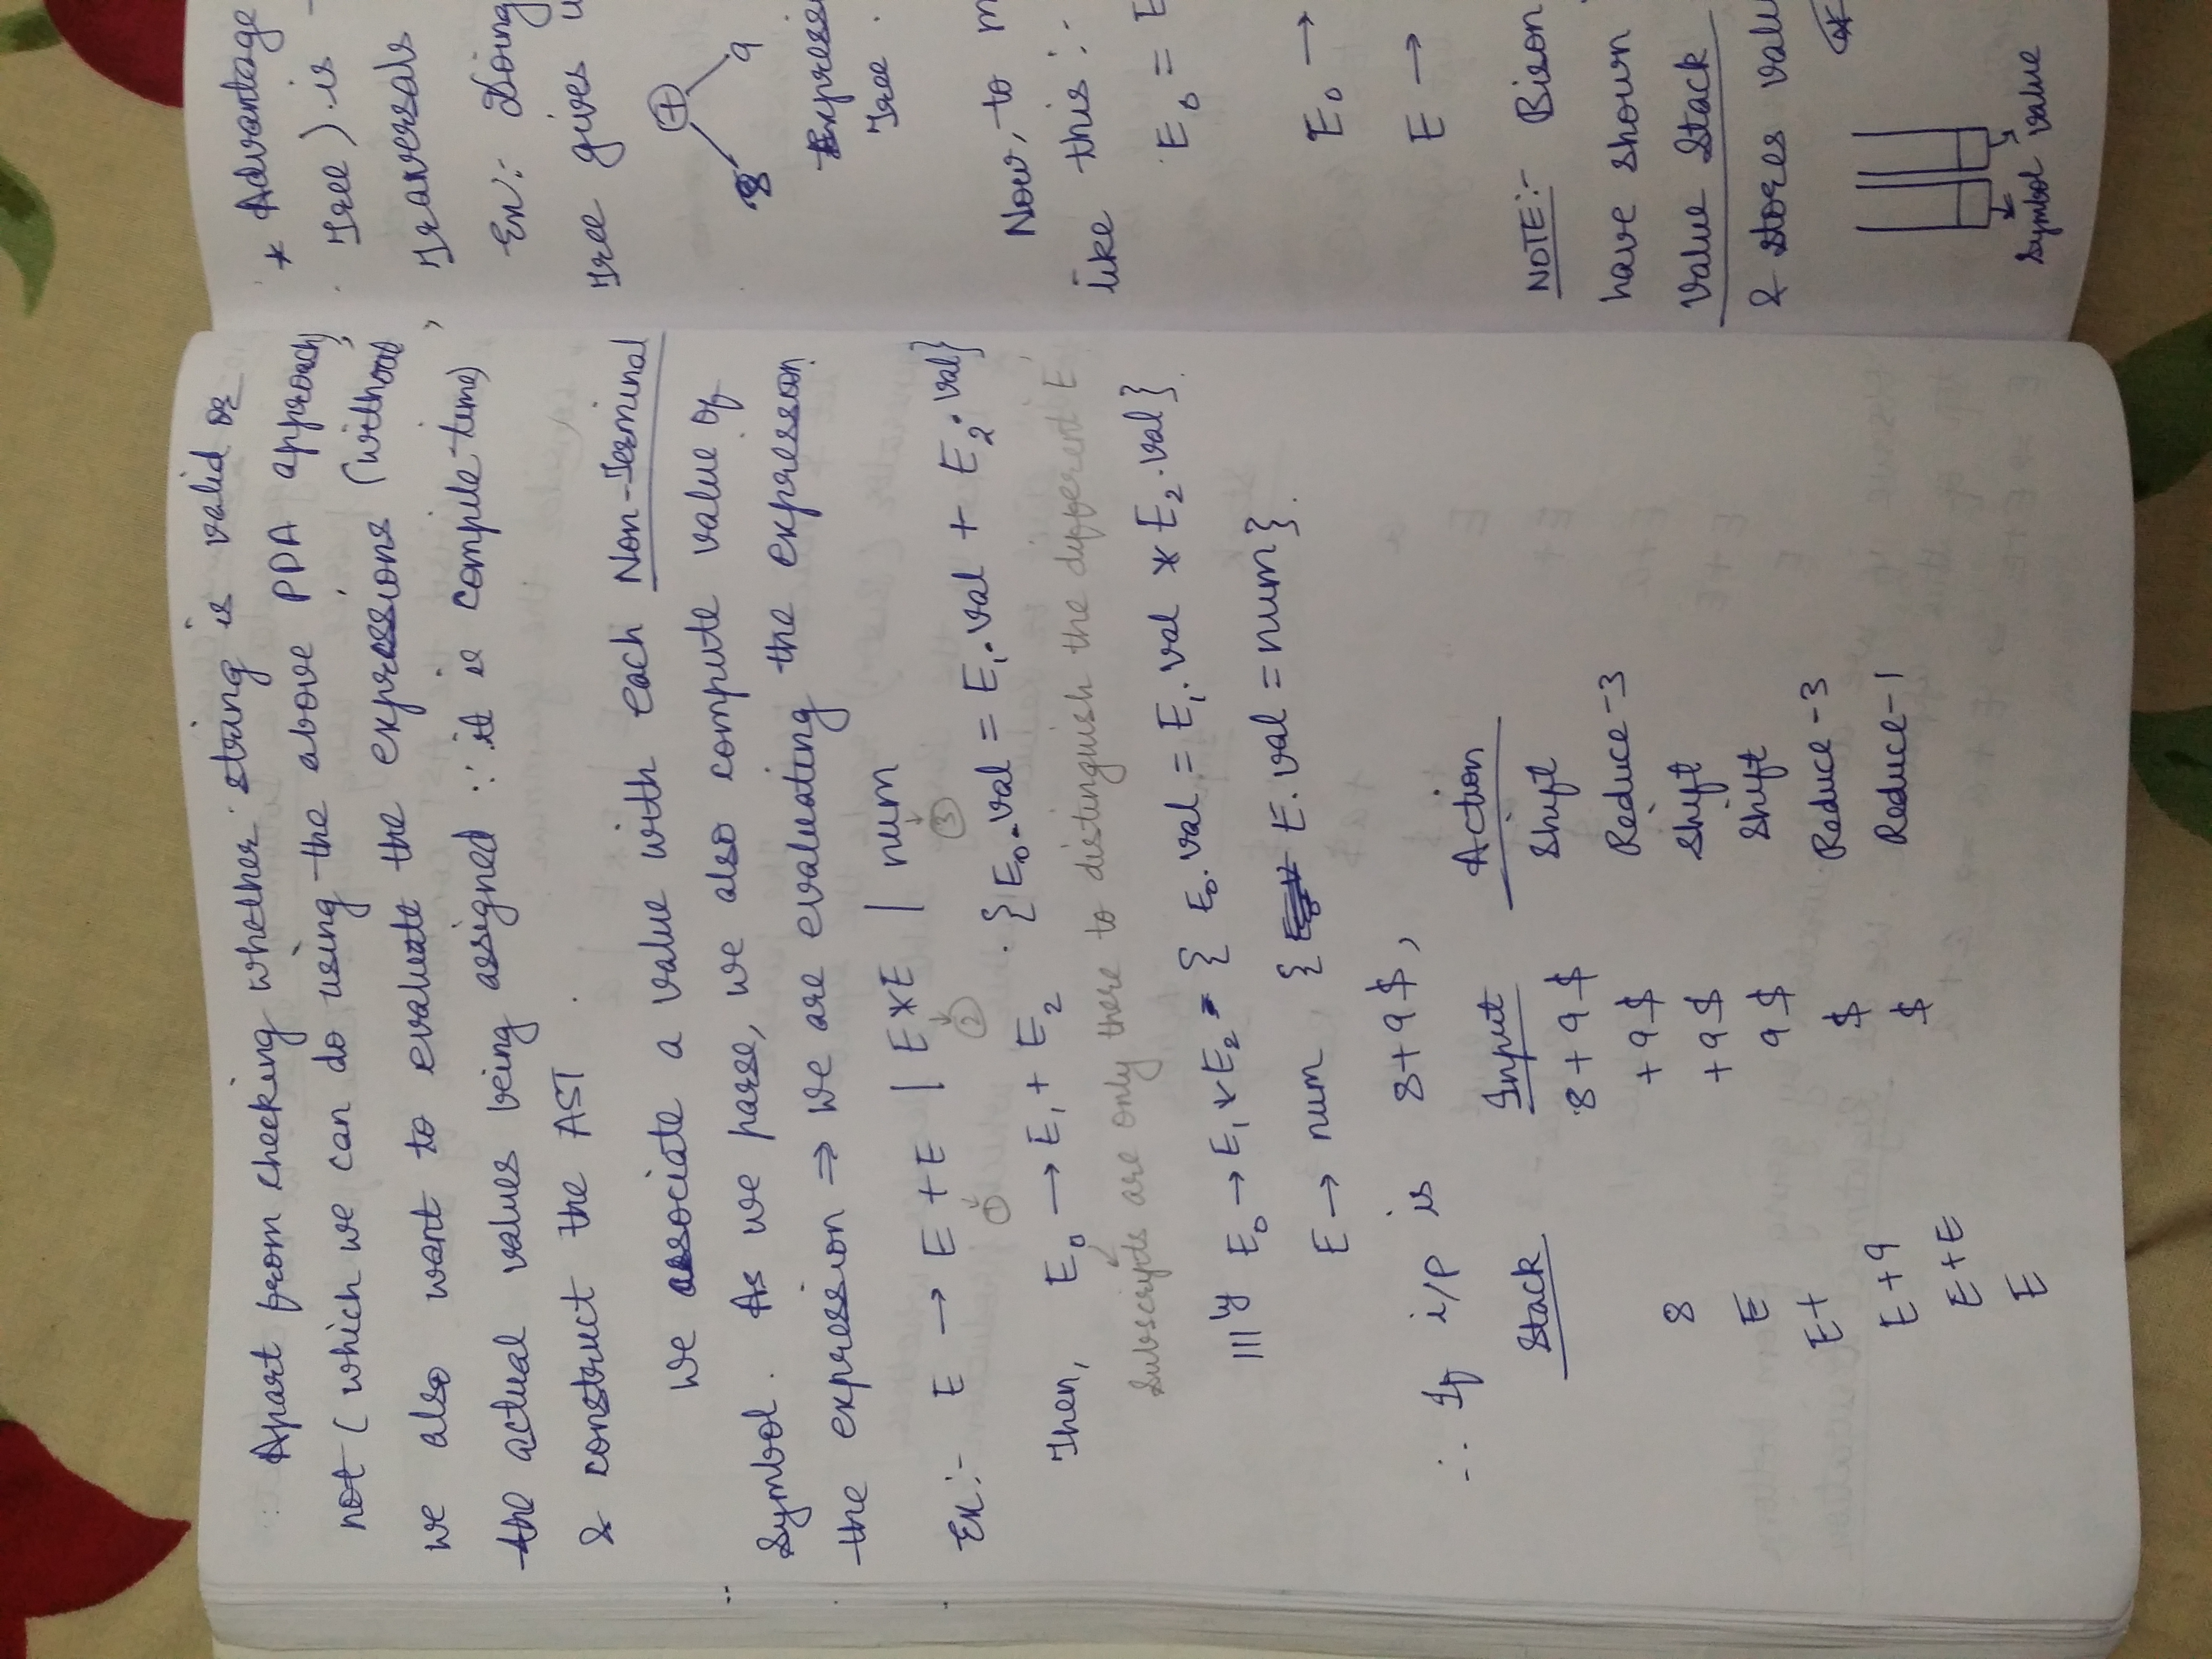 Apart from checking whether string is valid or
not (which we can do using the above PDA approach),
we also want to evaluate the expressions (without
the actual values being assigned ∵ it is compile time)
& construct the AST.
We associate a value with each Non-Terminal
Symbol. As we parse, we also compute value of
the expression ⇒ we are evaluating the expression.
Ex:- E → E+E | E*E | num
① ② ③
Then, E₀ → E₁ + E₂ {E₀.val = E₁.val + E₂.val}
Subscripts are only there to distinguish the different E
|||ly E₀ → E₁*E₂ { E₀.val = E₁.val * E₂.val}
E → num { E.val = num}
∴ If i/p is 8+9$,
Stack Input Action
8+9$ Shift
8 +9$ Reduce-3
E +9$ Shift
E+ 9$ Shift
E+9 $ Reduce-3
E+E $ Reduce-1
E
* Advantage
Tree) is
Traversals
Ex:- Doing
Tree gives
+
8 9
Expression
Tree
Now, to m
like this :-
E₀ = E
E₀ →
E →
NOTE:- Bison
have shown
Value Stack
& stores valu
Symbol Value